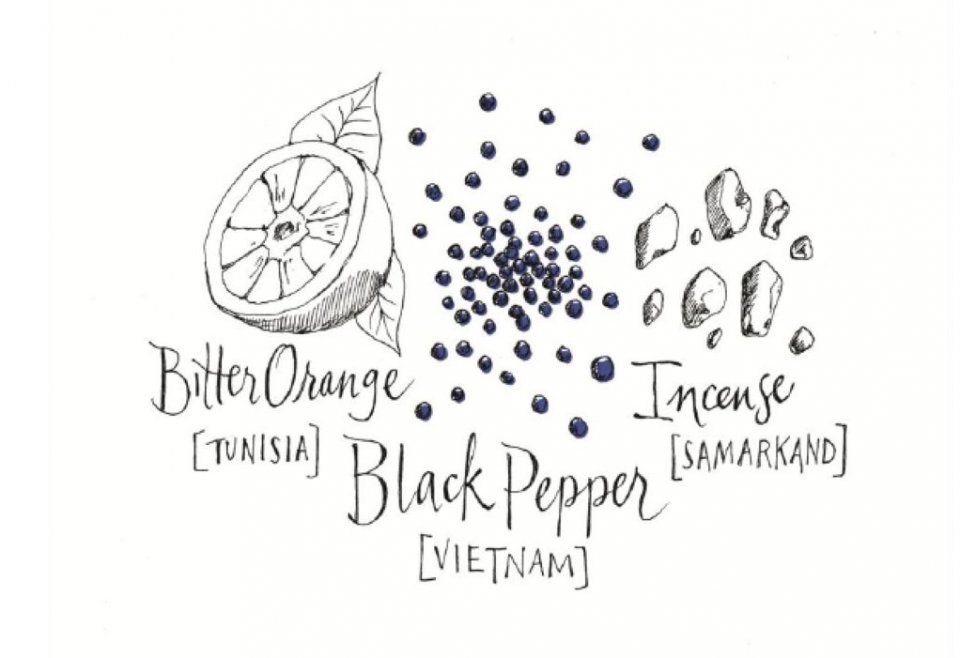 Bitter Orange
[TUNISIA]
Black Pepper
[VIETNAM]
Incense
[SAMARKAND]